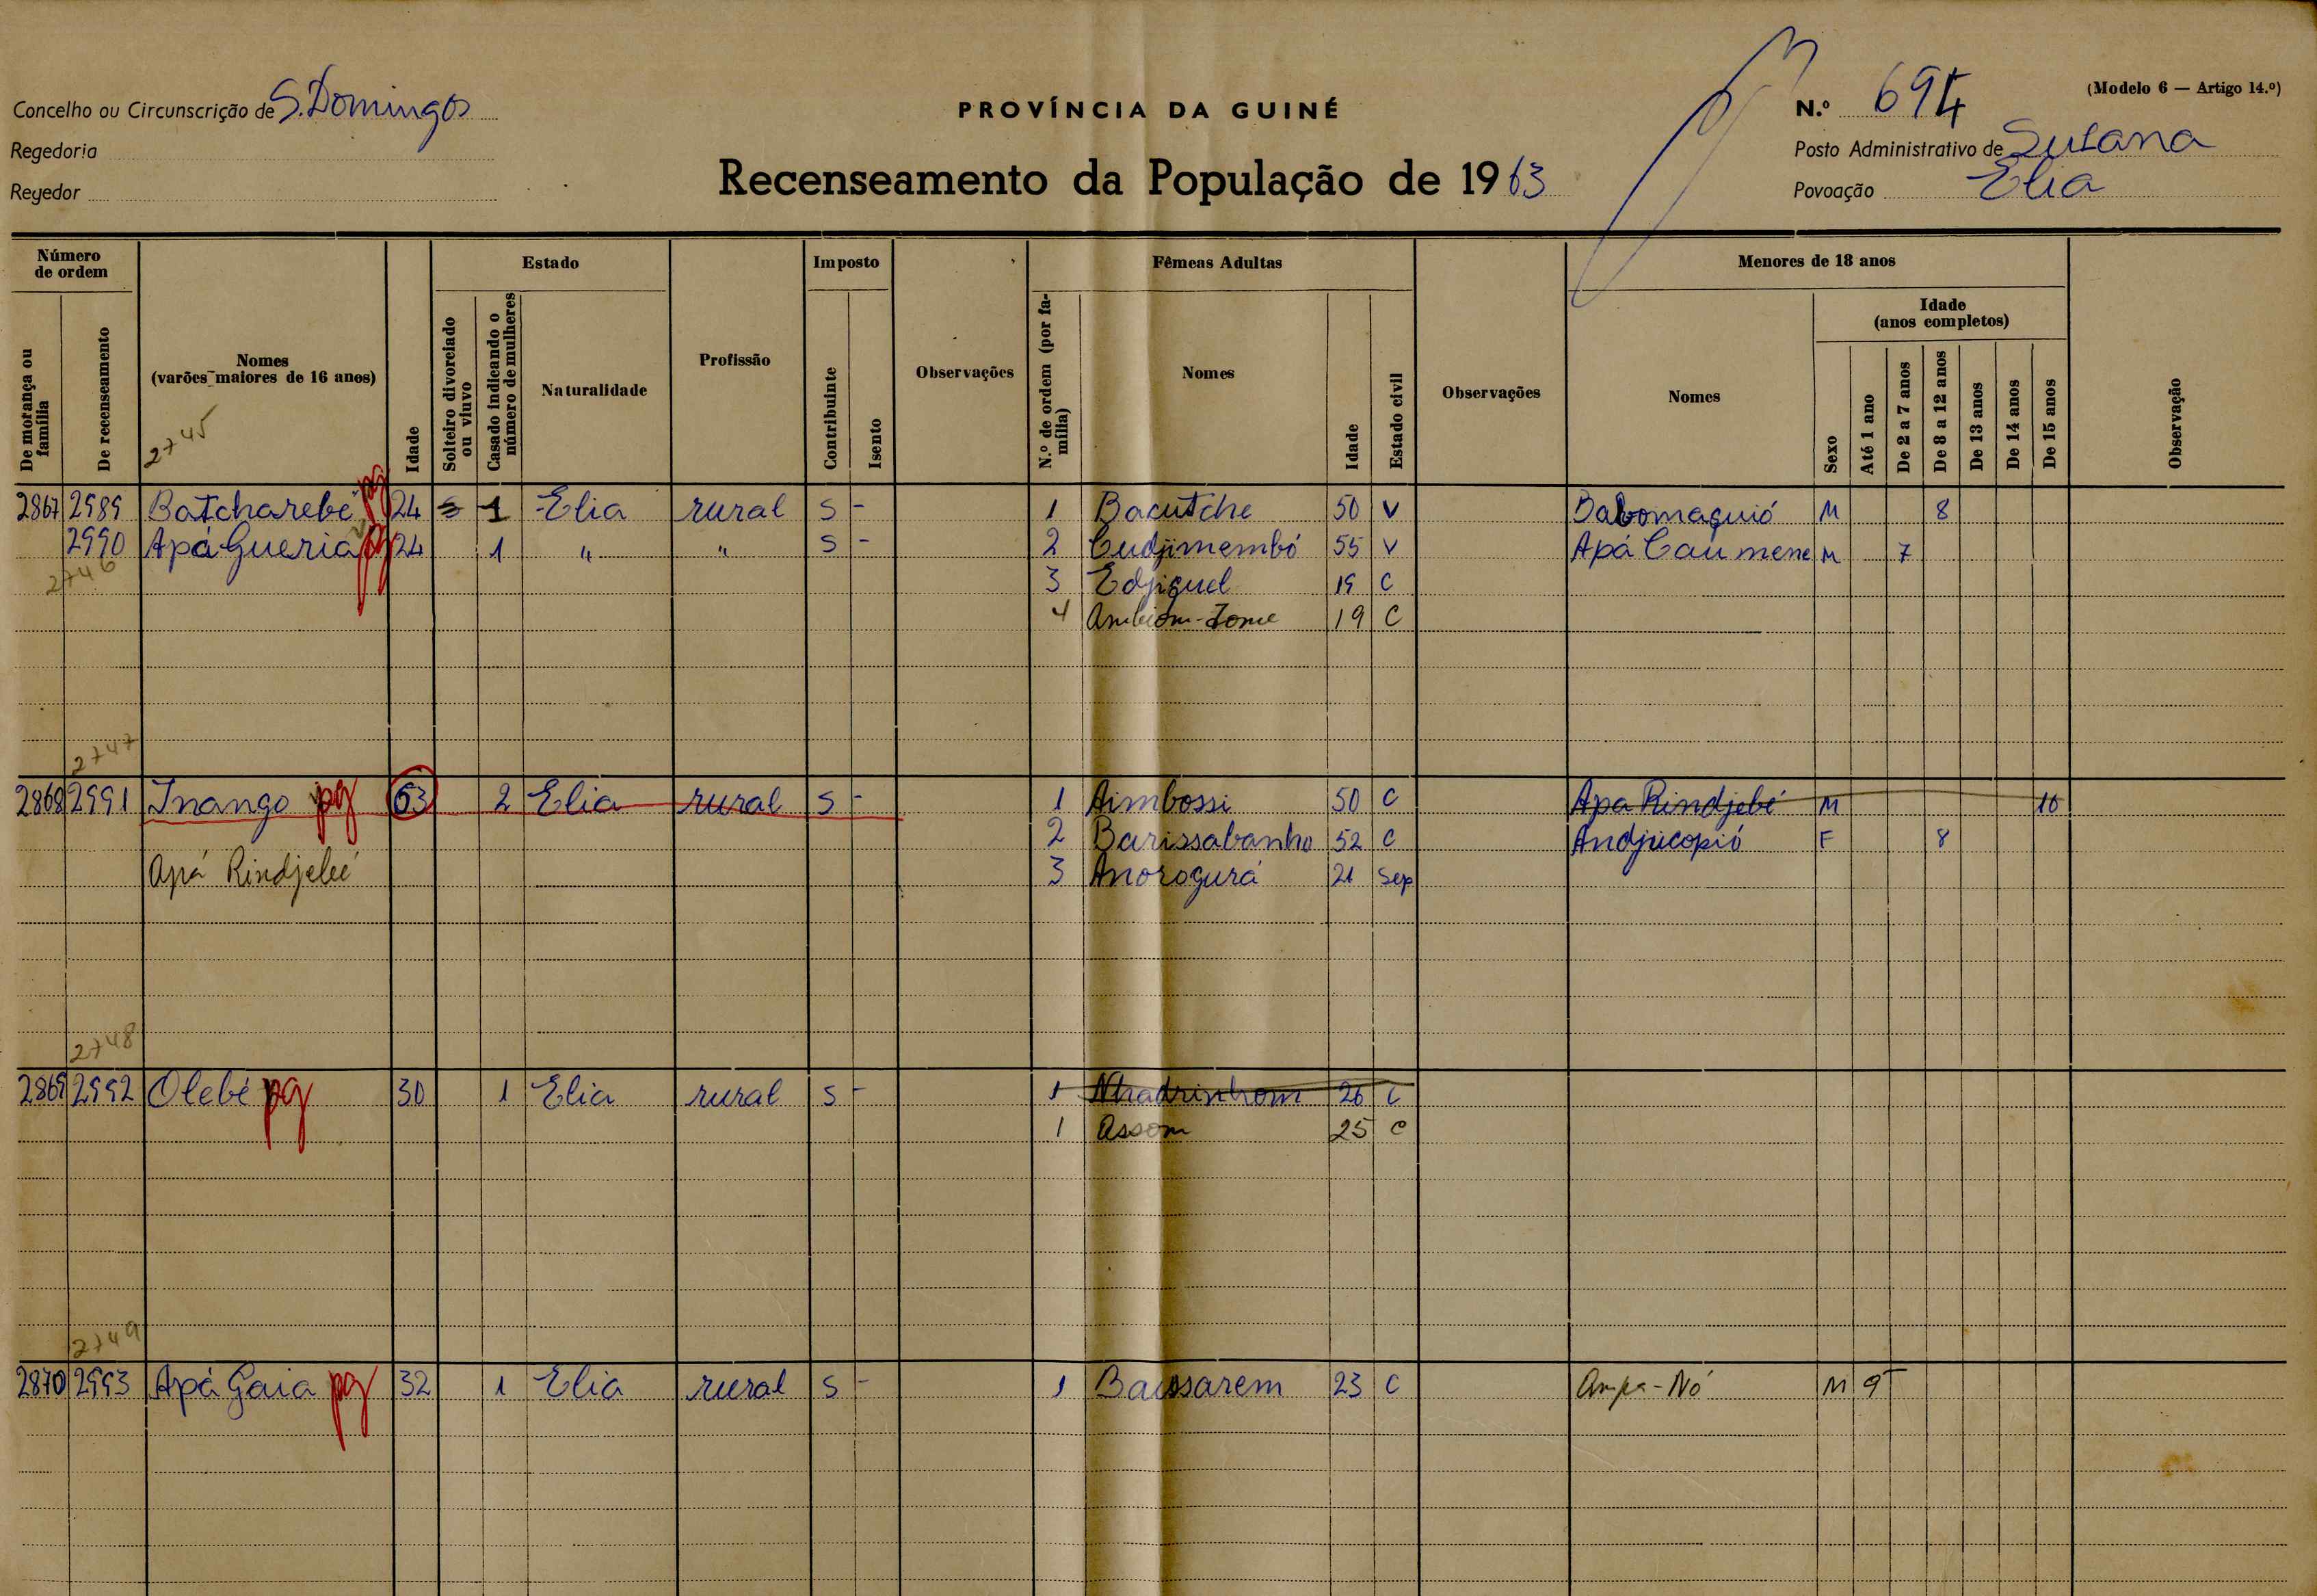 Concelho ou Circunscrição de S. Domingos
Regedoria
Regedor
PROVÍNCIA DA GUINÉ
Recenseamento da População de 1963
(Modelo 6 — Artigo 14.º)
N.º 694
Posto Administrativo de Susana
Povoação Elia
Número de ordem
De morança ou família
De recenseamento
Nomes (varões maiores de 16 anos)
Idade
Estado
Solteiro divorciado ou viuvo
Casado indicando o número de mulheres
Naturalidade
Profissão
Imposto
Contribuinte
Isento
Observações
Fêmeas Adultas
N.º de ordem (por família)
Nomes
Idade
Estado civil
Observações
Menores de 18 anos
Nomes
Sexo
Idade (anos completos)
Até 1 ano
De 2 a 7 anos
De 8 a 12 anos
De 13 anos
De 14 anos
De 15 anos
Observação
2745
2867 2989 Batcharebé pg 24 S 1 Elia rural S - 1 Bacutche 50 V Babomaguió M 8
2990 Apá Gueria pg 24 1 " " S - 2 Cudjimembó 55 V Apá Caumene M 7
2746 3 Edjiguel 19 C
4 Ambiom-Tome 19 C
2747
2868 2991 Inango pg 63 2 Elia rural S - 1 Aimbossi 50 C Apa Rindjebé M 16
2 Barissabanho 52 C Andjucopió F 8
Apá Rindjebé 3 Anorogurá 21 Sep
2748
2869 2992 Olebé pg 30 1 Elia rural S - 1 Nhadrinhom 26 C
1 Assom 25 C
2749
2870 2993 Apá Gaia pg 32 1 Elia rural S - 1 Baussarem 23 C Ampa-Nó M